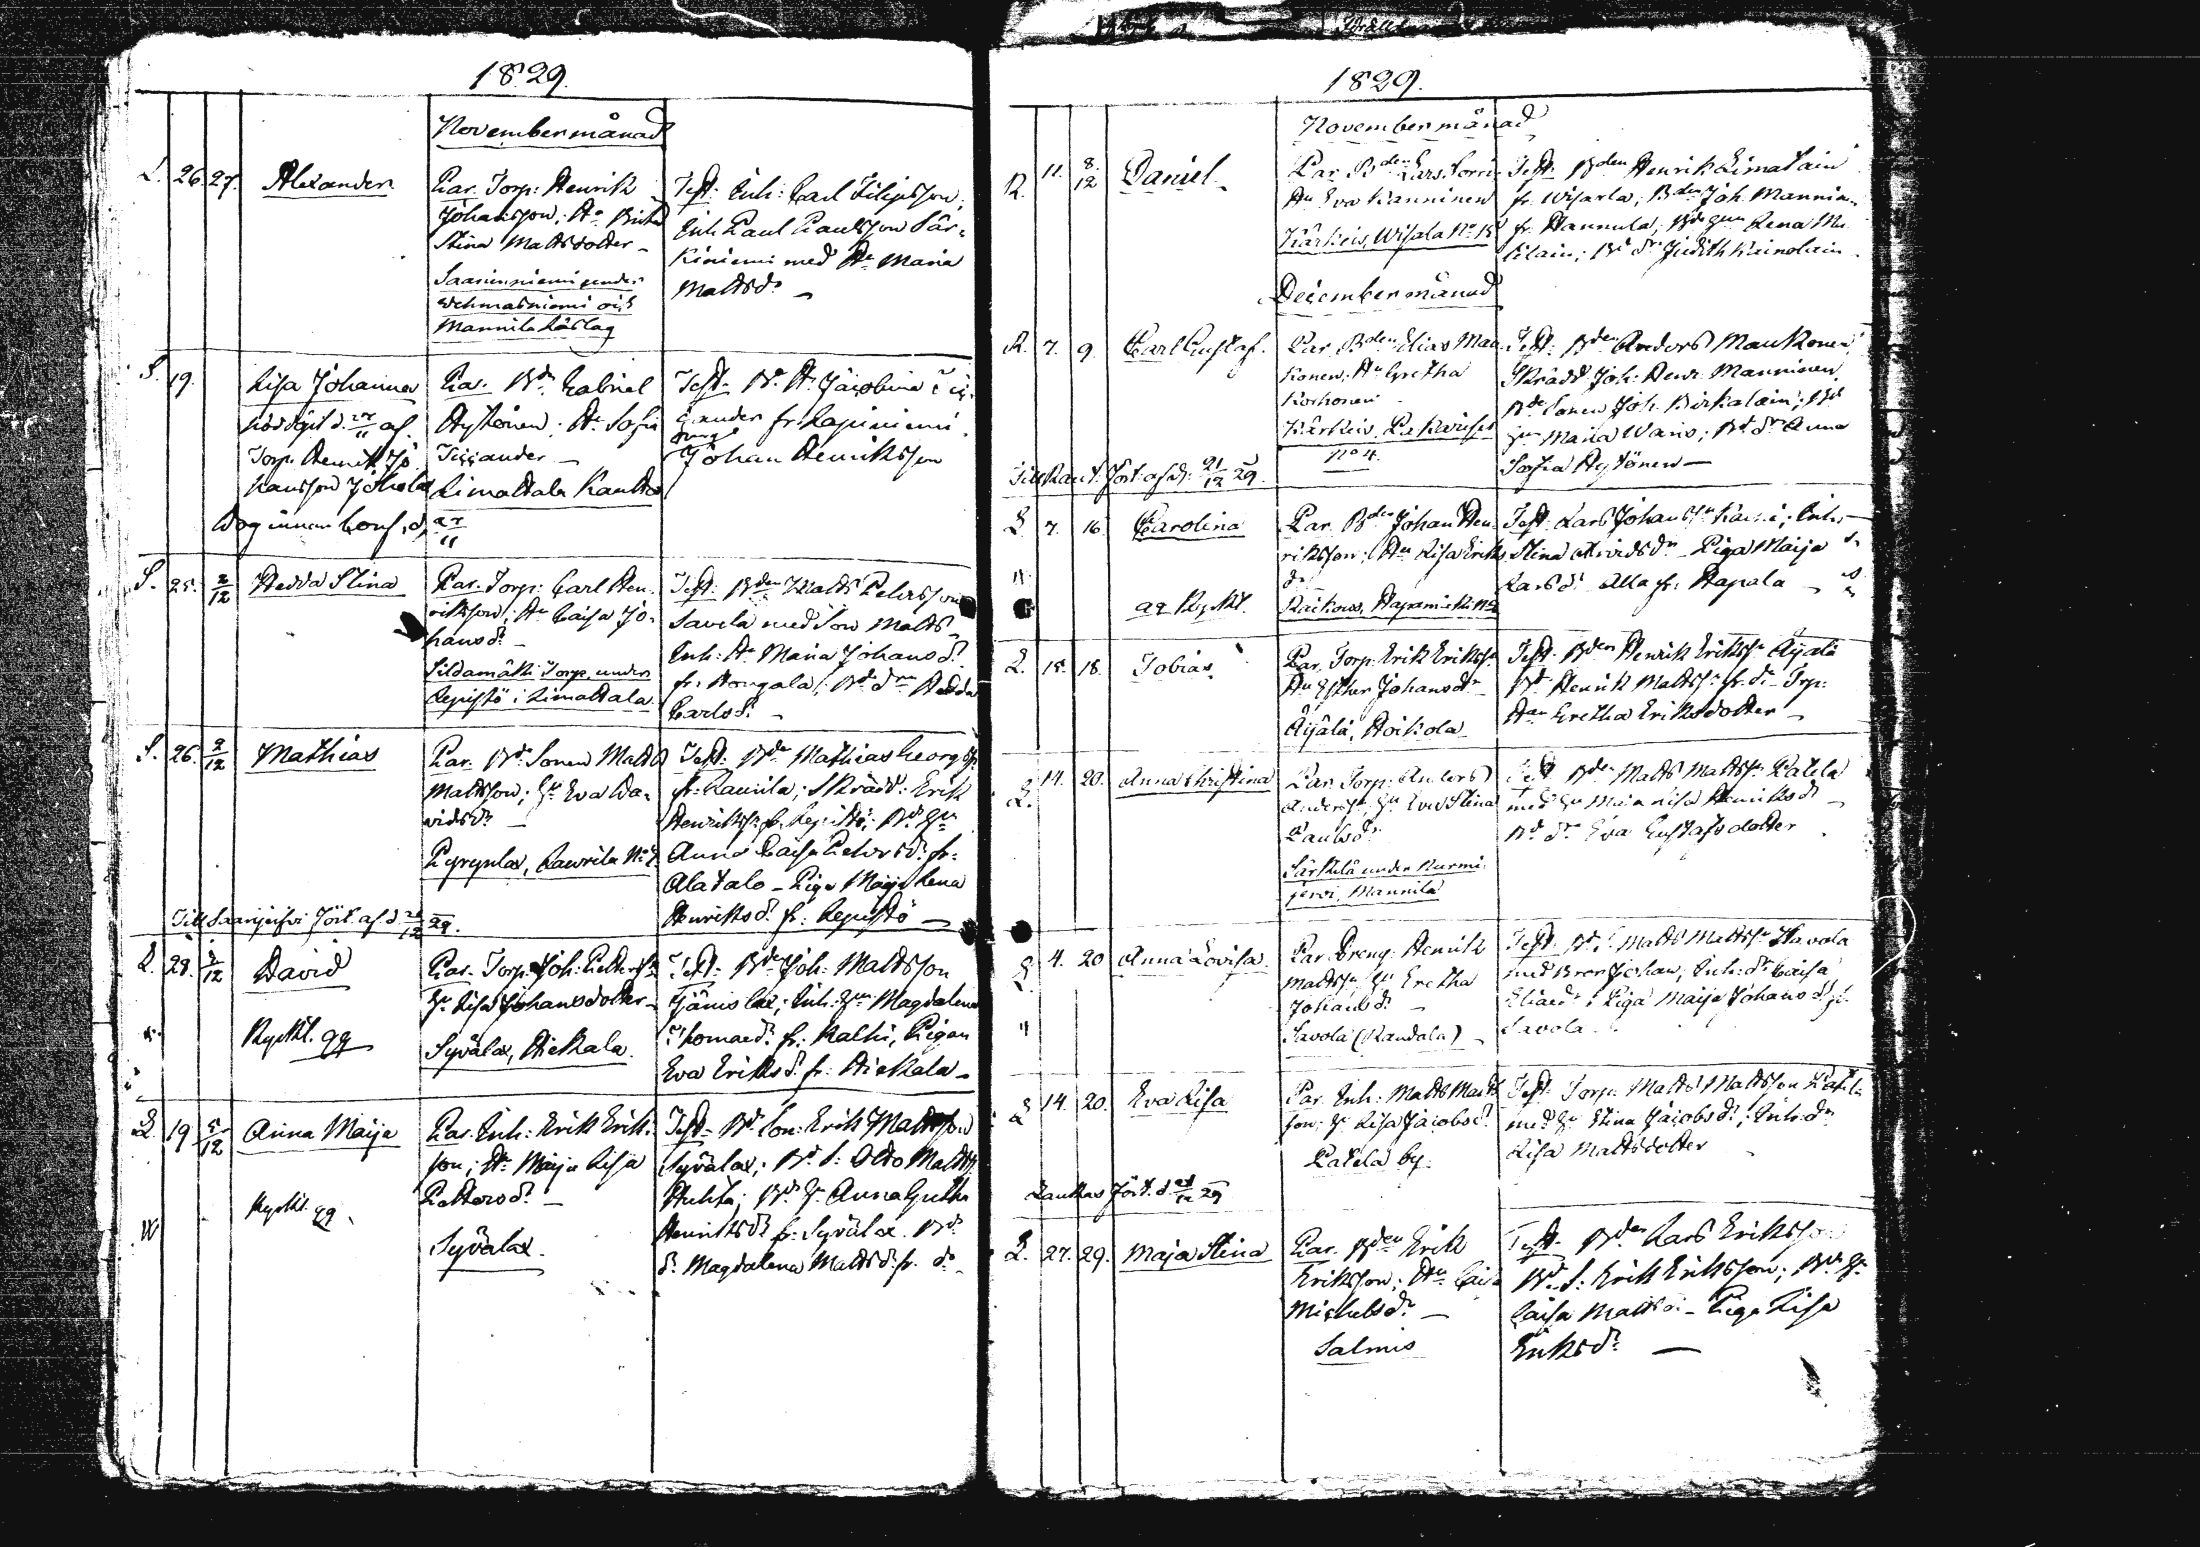 1829.
Novembermånad
L. 26. 27. Alexander
Par. Torp: Henrik
Johansson; Hu
Stina Mattsdotter
Saarinniemi under
Wehmasniemi och
Mannila håslag
Test: Inh: Carl Filipsson,
Inh. Paul Paulsson Sär-
kiniemi med Hu Maria
Mattsdr
S. 19.
Lisa Johanna
nöddöpt d. 27/11 af
Torp. Henrik Jo
hansson Johola
Dog innan Conf. d. 27/11
Par. Bdn Gabriel
Hytönen; Hu Sofia
Ticcander
Limattala Kautto
Test. Bd. Hu Jacobina Tic-
cander fr. Lapiniemi.
Johan Henriksson
S. 25. 2/12 Hedda Stina
Par. Torp: Carl Hen-
riksson; Hu Caisa Jo-
hansdr
Sildamäki Torp. under
Repistö i Limattala
Test. Bden Matts Petersson
Savela med Son Matts
Inh: Hu Maria Johansdr
fr. Hongala; Bd. drn Hedda
Carlsdr
S. 26. 2/12 Mathias
Par. Bd. Sonen Matts
Mattsson; Hu Eva Da-
vidsdr
Pyrynlax, Laurila No
Test: Bdn Mathias Georgss.
fr. Raunila; Skrädd: Erik
Henrikss. fr. Repistö; Bd. Hu
Anna Caisa Petersdr fr.
Alatalo - Piga Maija Lena
Henriksdr fr: Repistö
Till Saarijerfvi förd. af. d. 29.
L. 28. 12 David
Ryckt. 99
Par. Torp. Joh. Petterss.
Hu Lisa Johansdotter
Syvälax, Hiekala.
Test: Bdn Joh: Mattsson
Tjänislax; Inh. Hu Magdalena
Thomaedr fr: Kalhi, Pigan
Eva Eriksdr fr: Hiekala
L. 19 5/12 Anna Maija
Ryckt. 99.
Par. Inh: Erik Erik-
son; Hu Maija Lisa
Pettersdr
Syvälax.
Test- Bd. Son: Erik Mattsson
Syvälax; Bd. S: Otto Mattss.
Huhta; Bd. Hu Anna Greta
Henriksdr fr: Syvälax. Bd.
dr Magdalena Mattsdr fr. do
1829.
Novembermånad
R. 11. 8/12 Daniel
Par Bden Lars
Hu Eva Kanninen
Kärkeis, Wisala No 18
Test. Bden Henrik Limatain
fr. Wisarla; Bden Joh. Mannin-
fr. Hannula; Lena
Bd dr Judith
Decembermånad
R. 7. 9. Carl Gustaf.
Par. Bden Elias Mau
konen; Hu Gretha
Korhonen
Kärkeis,
No 4.
Test: Bden Anders Maukonen
Skrädd Joh: Henr. Manninen
Bde Sonen Joh. Pirkalain;
Hu Maria Waris; Bd dr Anna
Sofia Hytönen
Till Raut. förd. af d: 21/12 29.
L. 7. 16. Carolina
Par. Bden Johan Hen-
riksson; Hu Lisa Eriks
dr
Raikous, Hapamäki No
Test. Lars Johanss. Inh:
Stina Arvidsdr Piga Maija
Larsdr Alla fr. Hapala
L. 15. 18. Tobias
Par. Torp. Erik Erikss.
Hu Esther Johansdr
Äijälä, Hoikola
Test. Bden Henrik Erikss. Äijälä
Bd. Henrik Mattss. fr. do - Torp:
Hu Gretha Eriksdotter
L. 14. 20. Anna Christina
Par. Torp: Anders
Anderss. Hu Eva Stina
Paulsdr
Särkelä under Nurmi-
jervi, Mannila
Test Bden Matts Mattss. Patela
med Hu Maja Lisa Henriksdr
Bd. dr Eva Gustafsdotter
L. 4. 20 Anna Lovisa.
Par. Dreng. Henrik
Mattss. Hu Gretha
Johansdr
Savola (Randala)
Test. Bd. S. Matts Mattss. Havola
med Bror Johan; Inh: dr Caisa
Eliaedr; Piga Maija Johansdr fr.
Savola
L 14. 20. Eva Lisa
Par. Inh: Matts Matts
son; Hu Lisa Jacobsdr
Patela by.
Test. Torp. Matts Mattsson Patela
med Hu Stina Jacobsdr; Inh. dr
Lisa Mattsdotter
Laukas förd. d. 29
L. 27. 29. Maja Stina
Par. Bden Erik
Eriksson; Hu Caisa
Michelsdr
Salmis
Test. Bden Lars Eriksson
Bd. S: Erik Eriksson; Bd. Hu
Caisa Mattsdr - Piga Lisa
Eriksdr